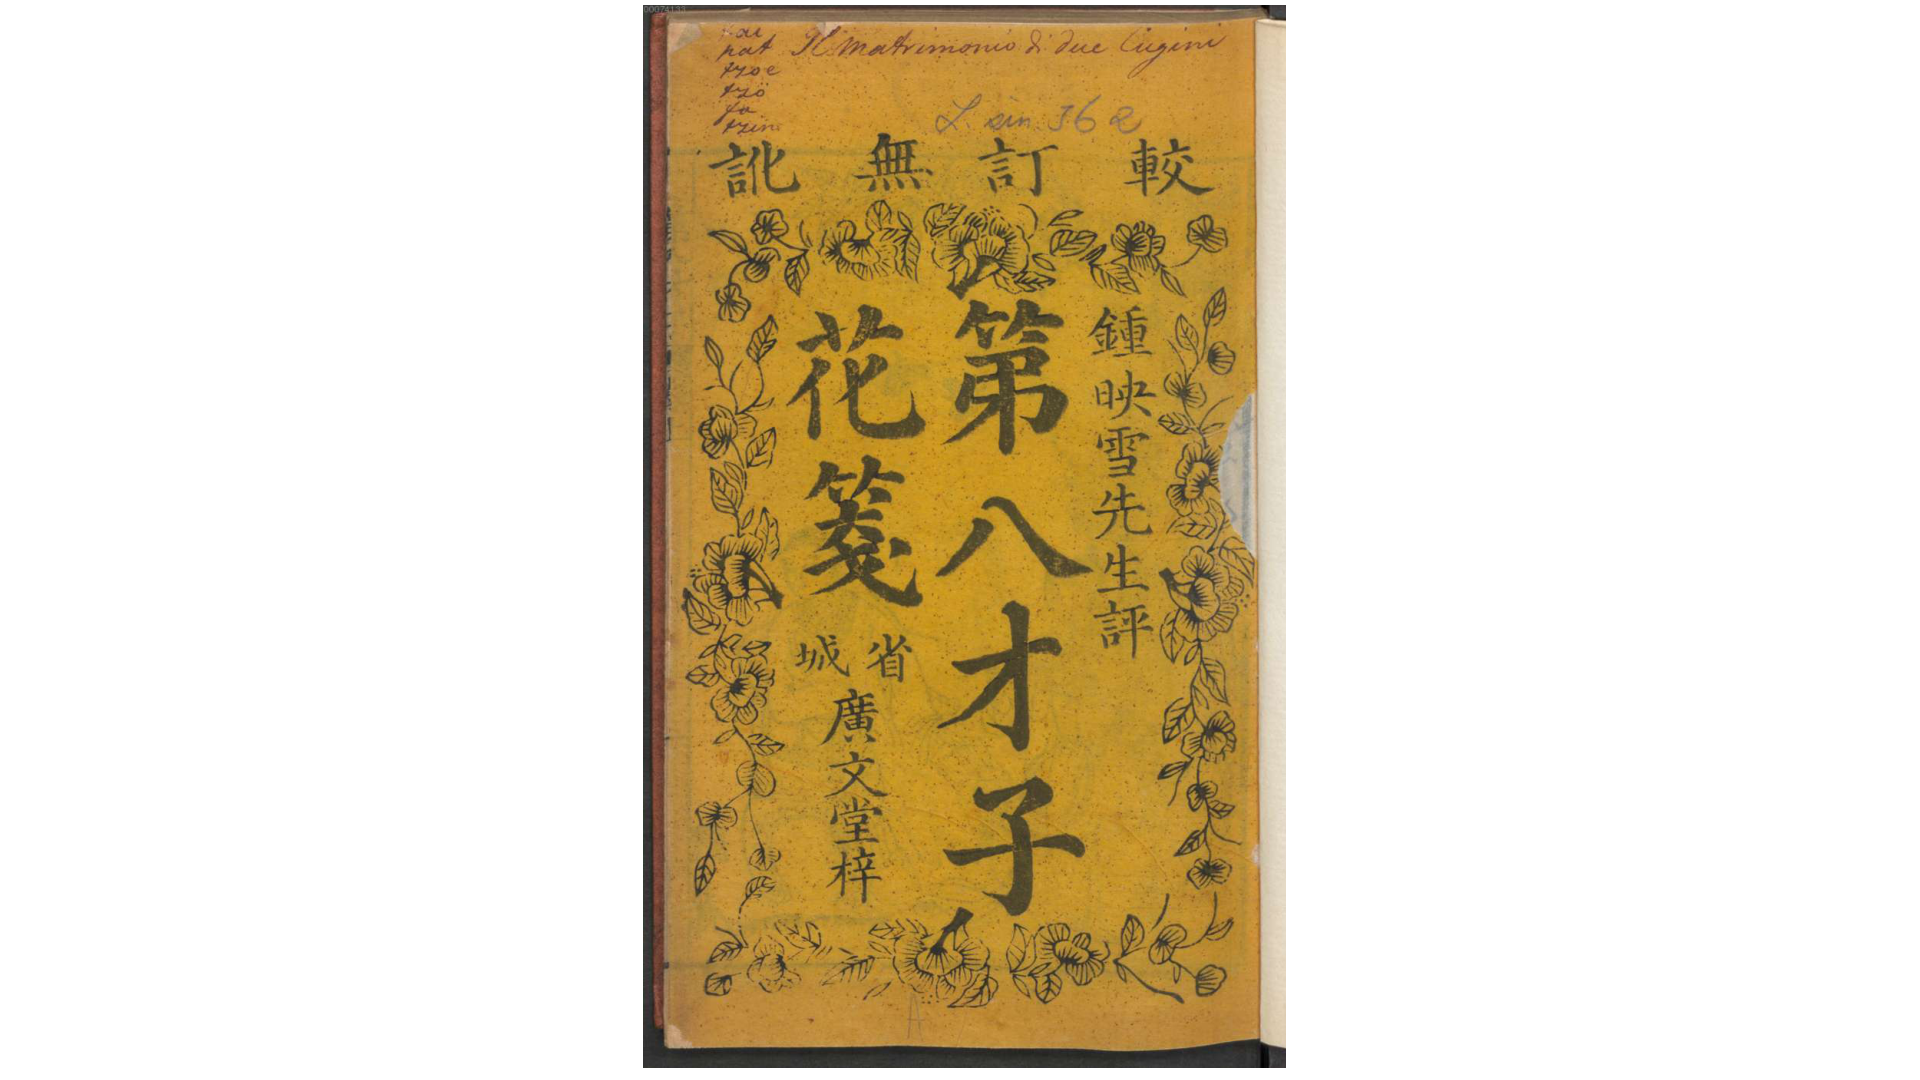 pat
tzoe
tzö
fa
tzin
Il matrimonio di due Cugini
L. sin. J62
較訂無訛
鍾映雪先生評
第八才子
花箋
省城
廣文堂梓